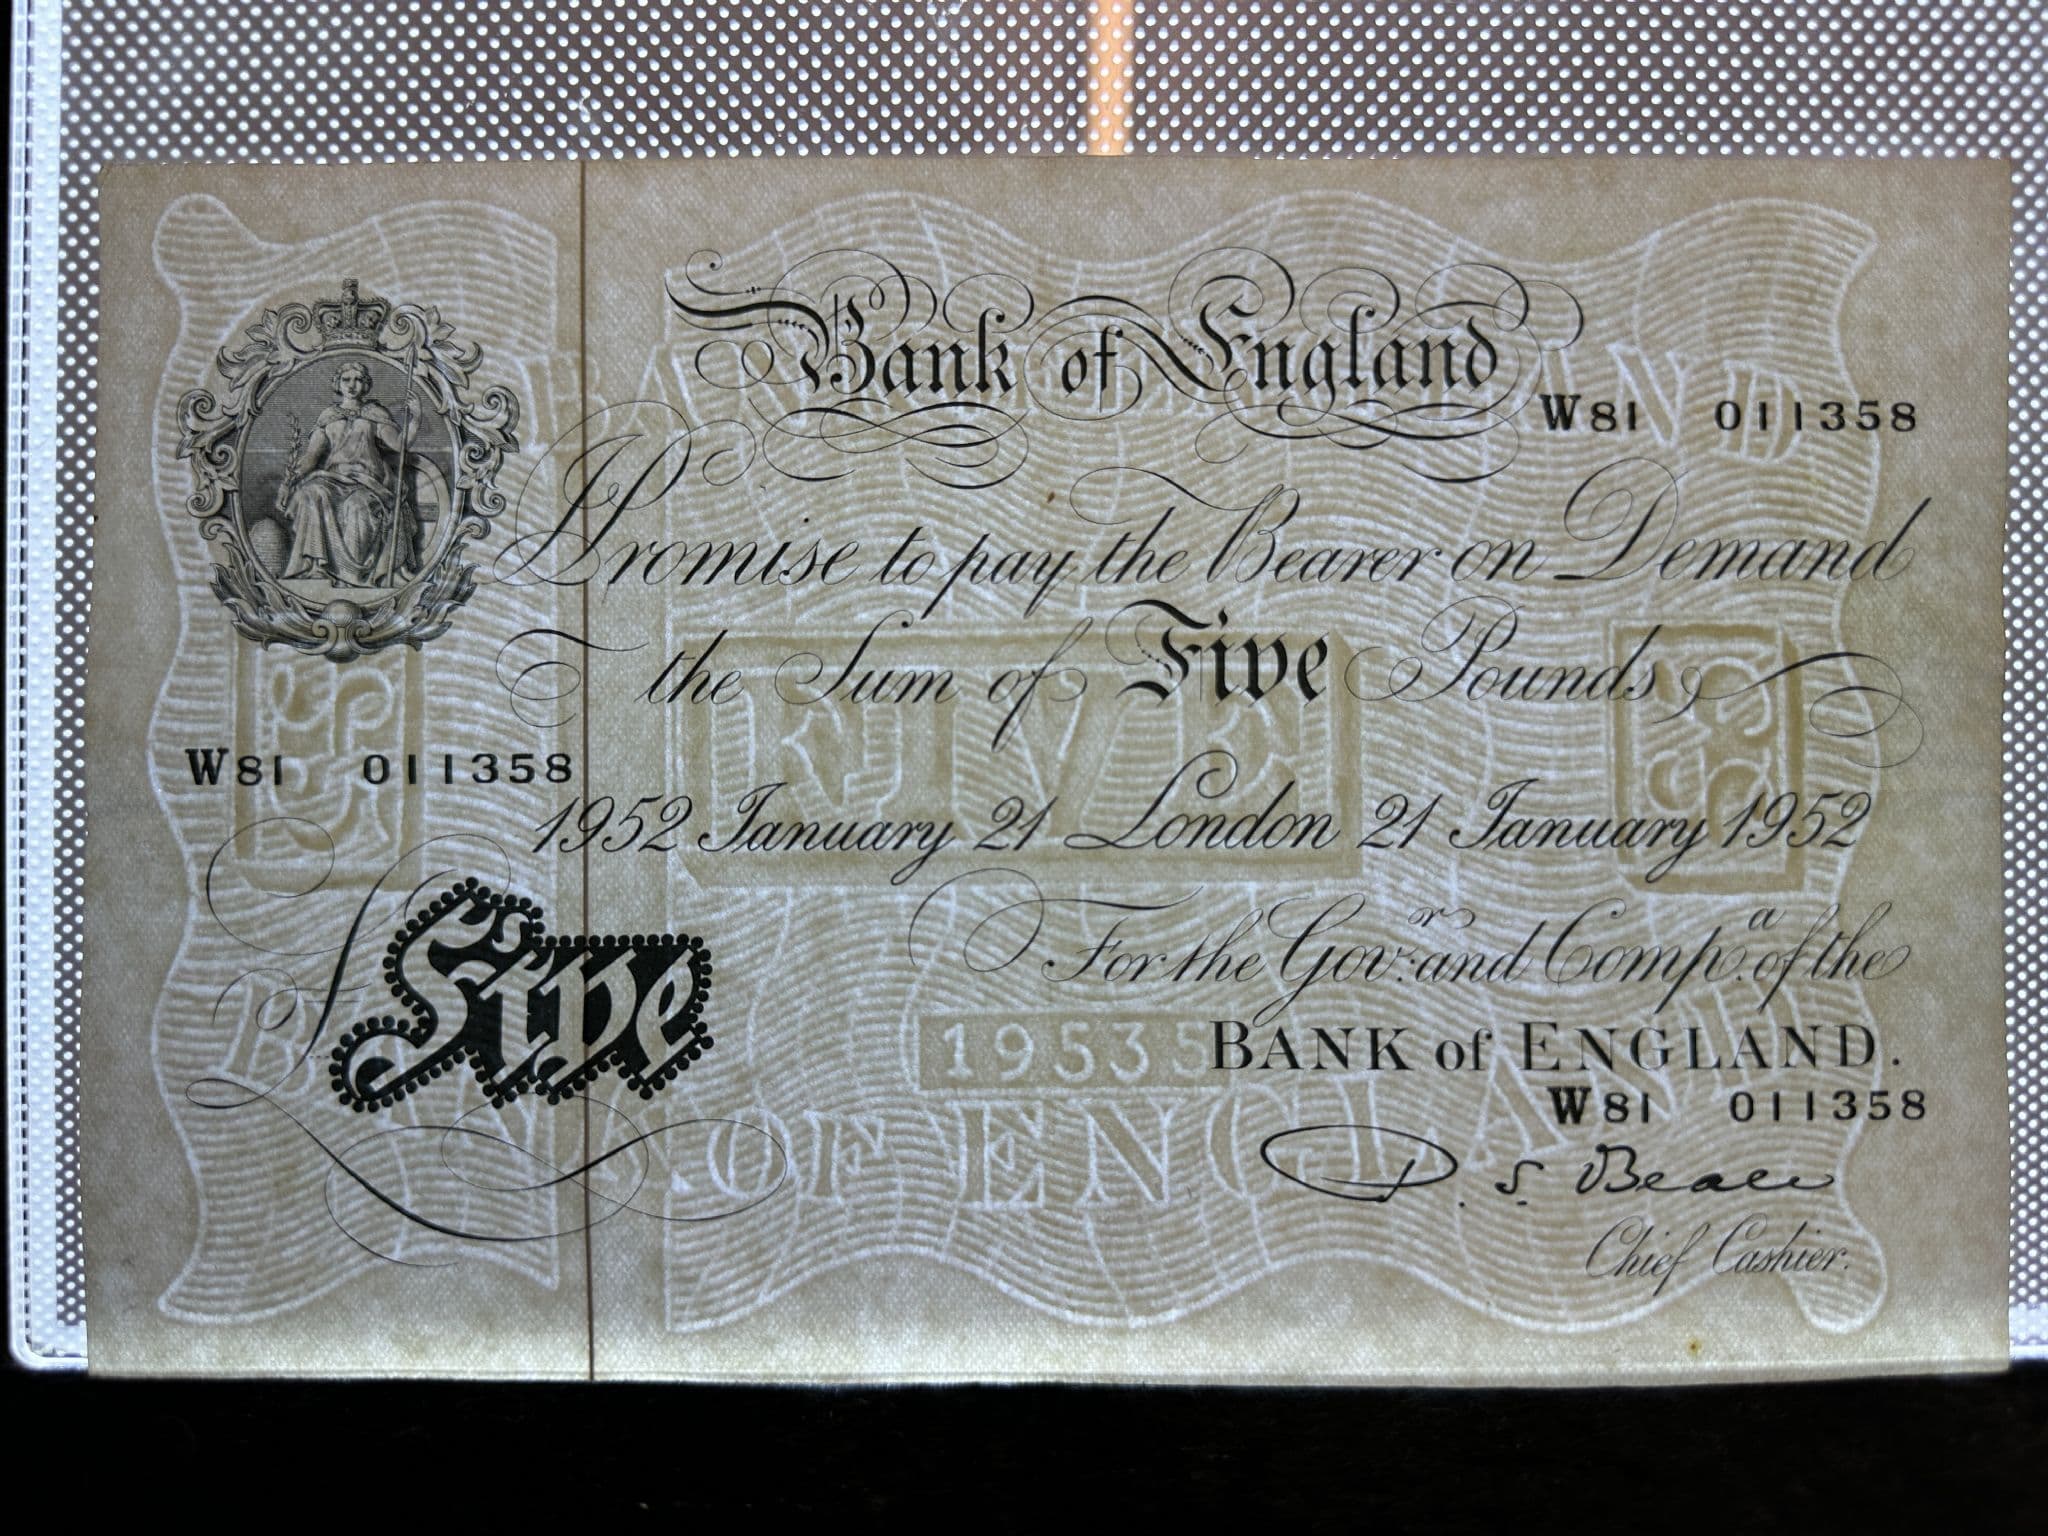 Bank of England
W81 011358
Promise to pay the Bearer on Demand
the Sum of Five Pounds
W81 011358
1952 January 21 London 21 January 1952
For the Gov:r and Comp.a of the
£Five
19535
BANK of ENGLAND.
W81 011358
BANK OF ENGLAND
D. S. Beale
Chief Cashier.
FIVE